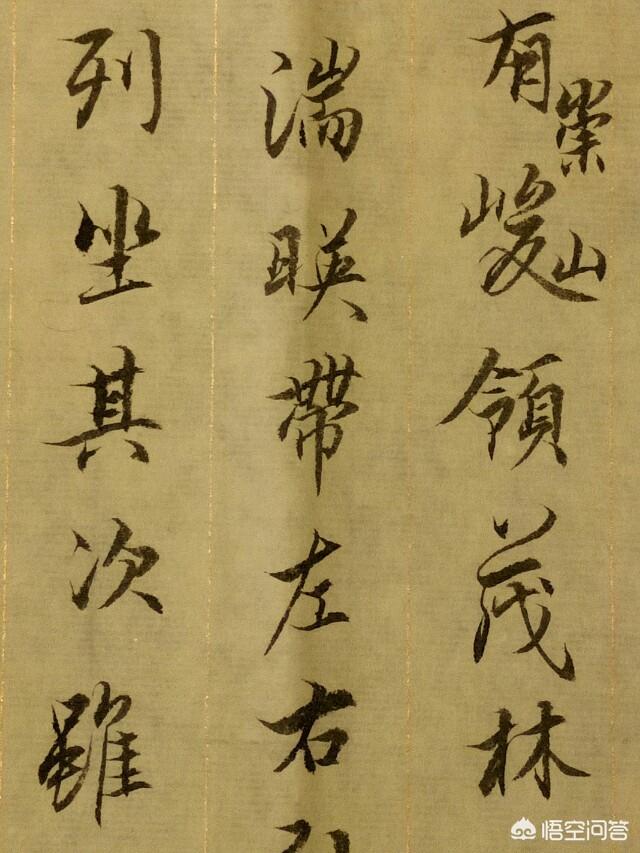 有崇山峻領茂林
湍暎帶左右
列坐其次雖
悟空问答